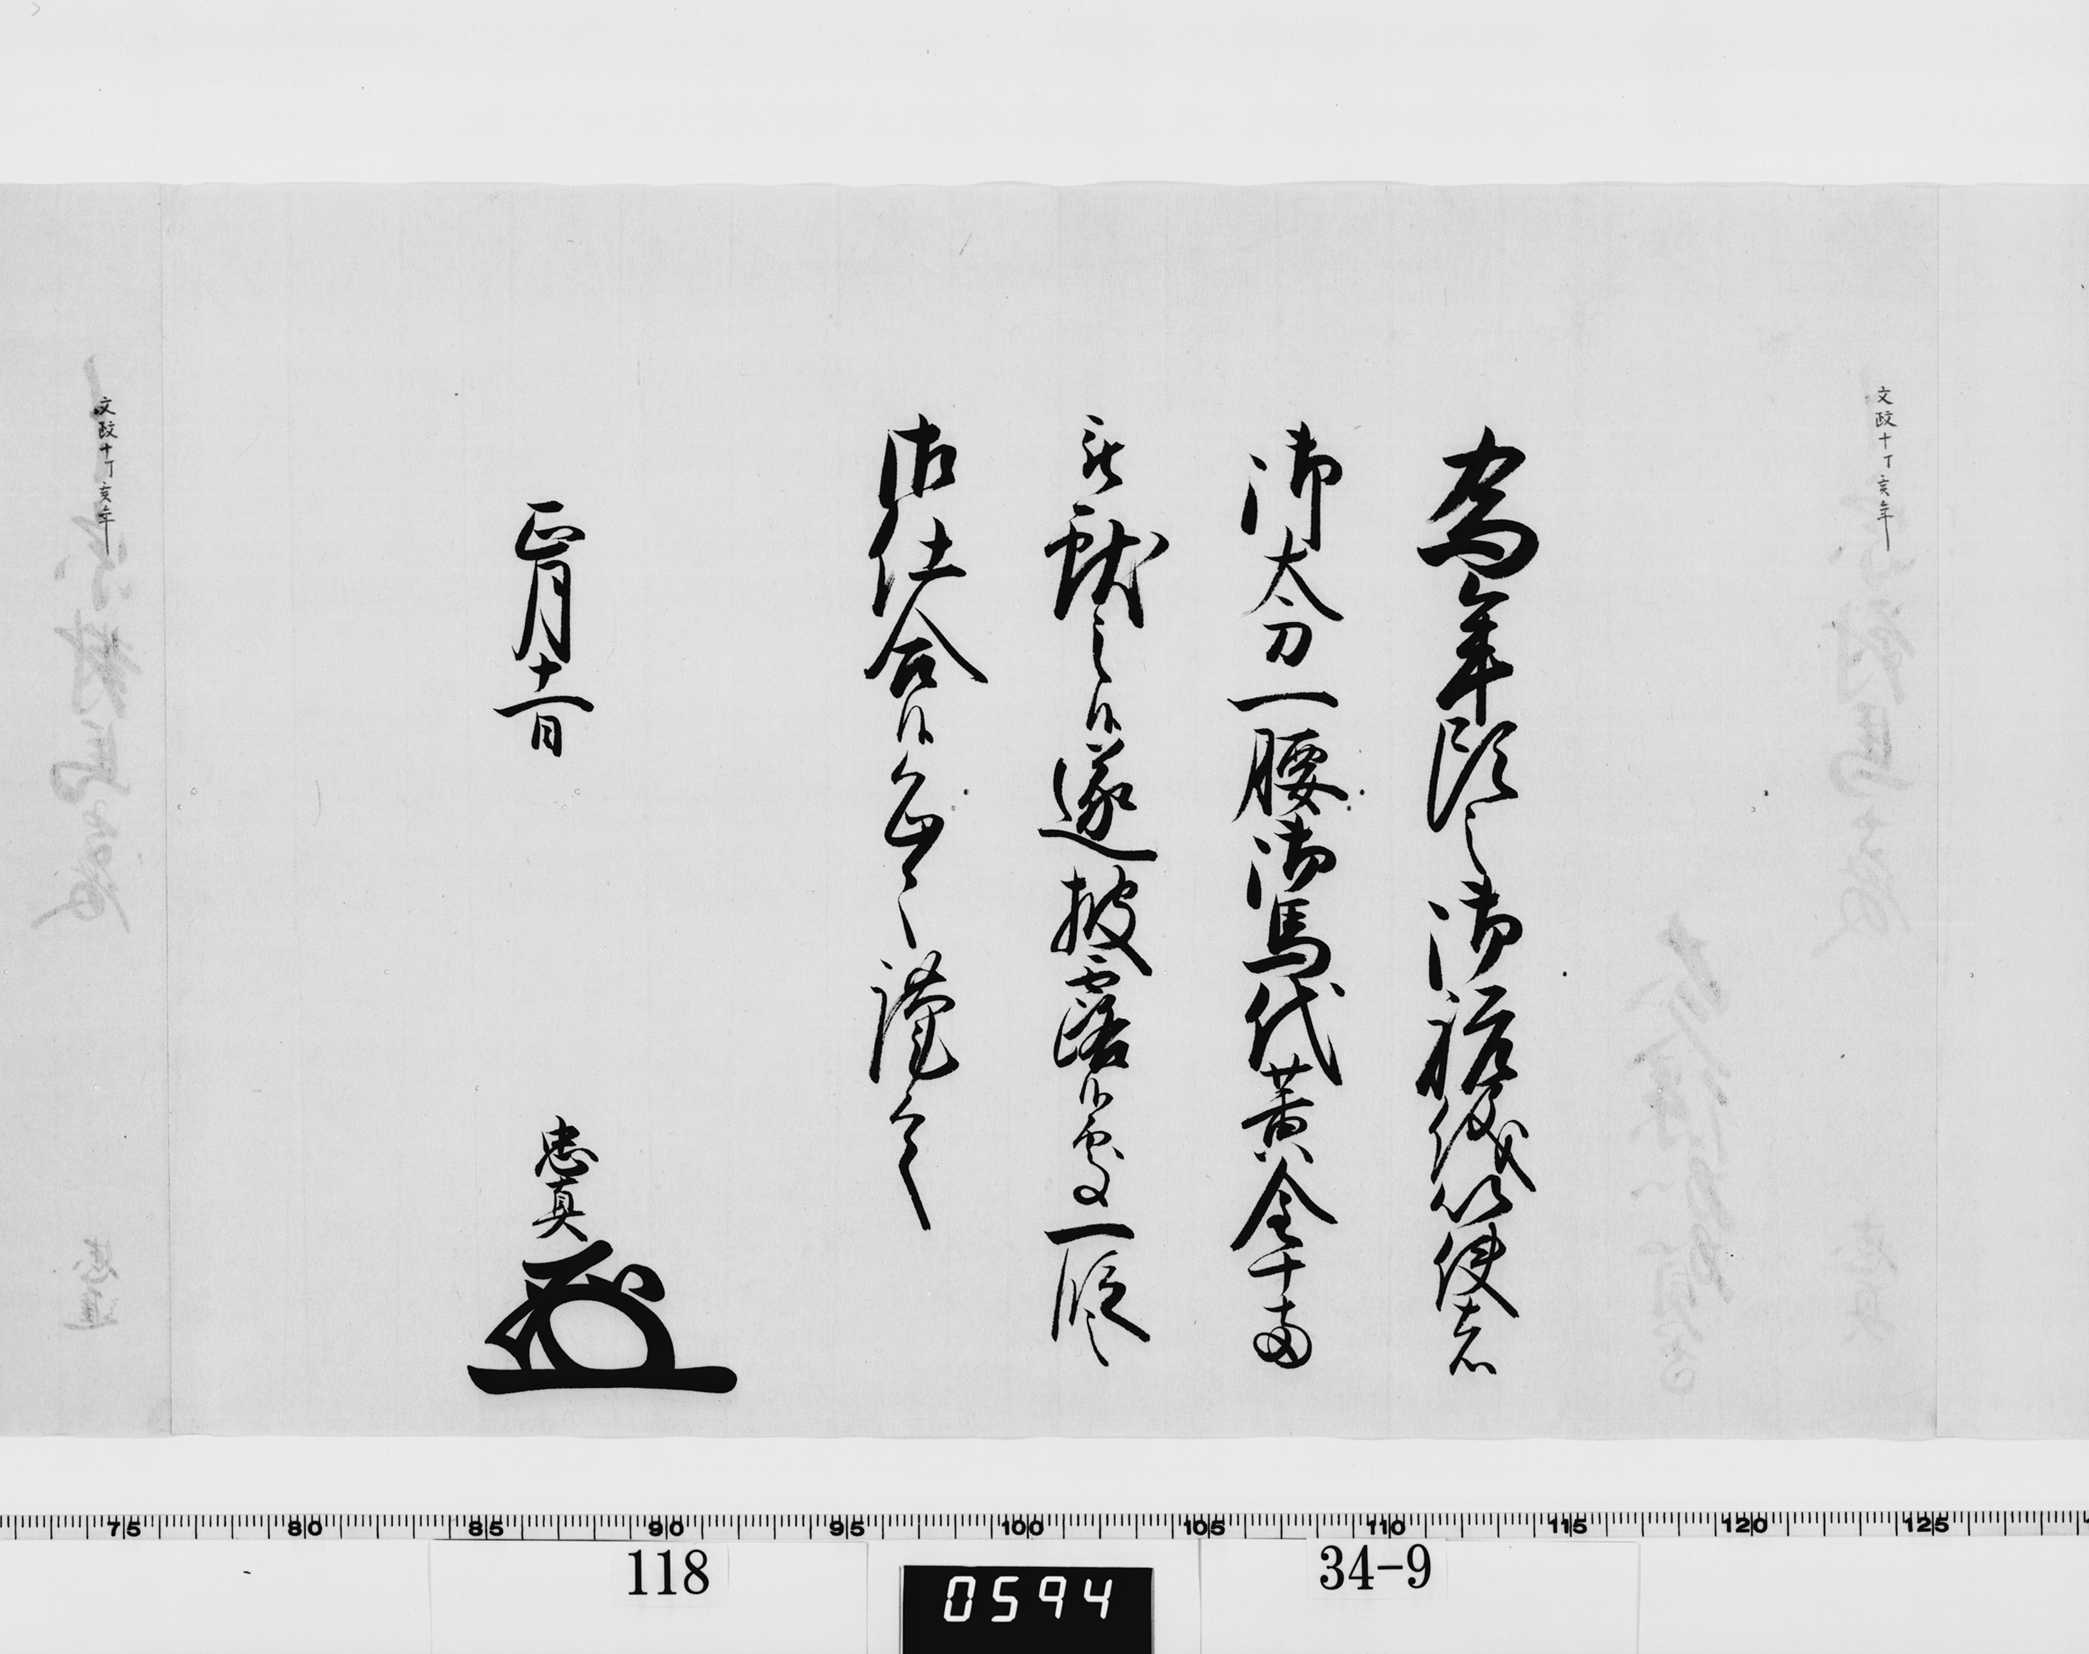 文政十丁亥年
為年頭之御祝儀以使者
御太刀一腰御馬代黄金十両
被献之候遂披露候処一段之
御仕合候恐々謹言
正月十一日
忠真
文政十丁亥年
75 80 85 90 95 100 105 110 115 120 125
118
0594
34-9